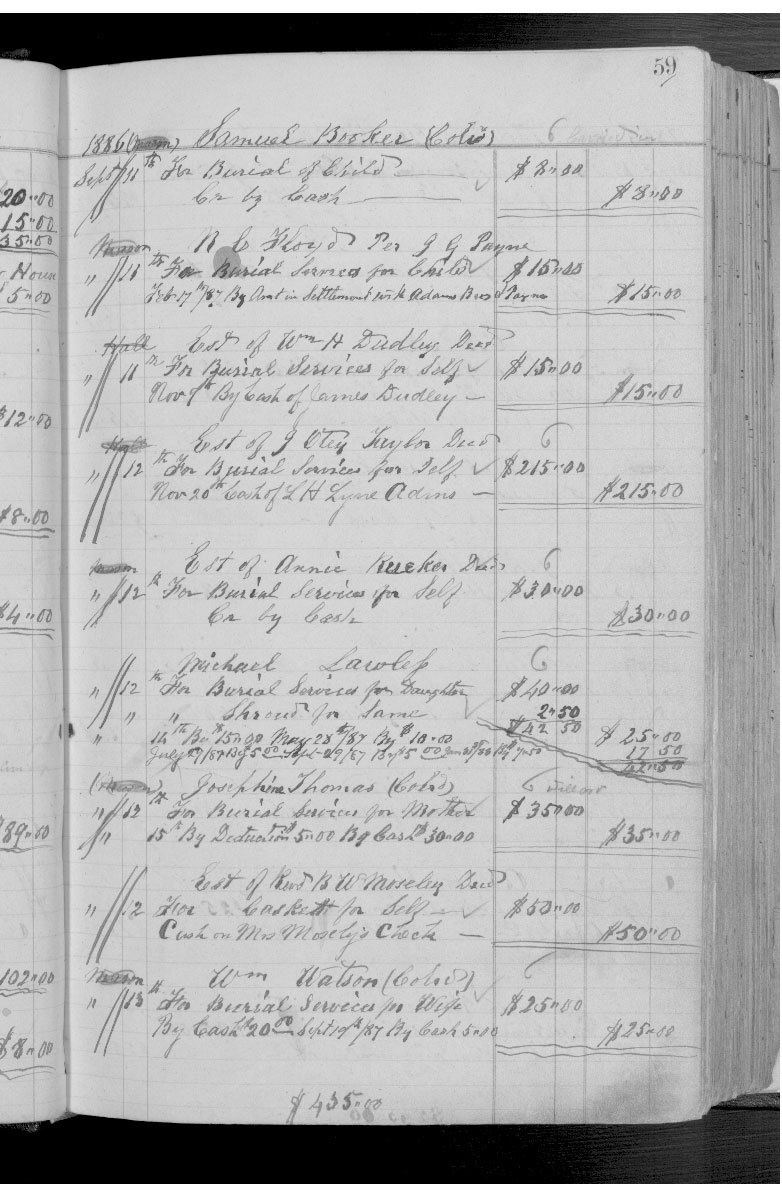 59
1886 (Mason) Samuel Booker (Col'd) 6
Sept 11th For Burial of Child $8"00
Cr by Cash $8"00
Mason R C Floyd Per J G Payne
" 11th For Burial Services for Child $15"00
Feb 17th/87 By Amt in Settlement with Adams Bros & Payne $15"00
Hall Est of Wm H Dudley Decd
" 11th For Burial Services for Self $15"00
Nov 9th By Cash of James Dudley $15"00
Hall Est of J Otey Taylor Decd 6
" 12th For Burial Services for Self $215"00
Nov 20th Cash of L H Lyne Admr $215"00
Mason Est of Annie Rucker Decd 6
" 12th For Burial Services for Self $30"00
Cr by Cash $30"00
Michael Lawless 6
" 12th For Burial Services for Daughter $40"00
" " " Shroud for Same 2"50
$42 50
" 14th By 15"00 May 28th/87 By $10"00 $25"00
July 29/87 By 5 00 Sept 29/87 By $5 00 Jan 28th/88 By $7"50 17 50
42"50
(Mason) Josephine Thomas (Col'd) 6
" 12th For Burial Services for Mother $35"00
" 15th By Deduction $5"00 By Cash $30"00 $35"00
Est of Revd B W Moseley Decd
" 12 For Caskett for Self $50"00
Cash on Mrs Mosely's Check $50"00
Mason Wm Watson (Col'd) 6
" 13th For Burial Services for Wife $25"00
By Cash $20 00 Sept 19th/87 By Cash 5"00 $25"00
$435"00
20"00
15"00
35"00
House
$5"00
$12"00
$8"00
$4"00
89"00
102"00
$8"00